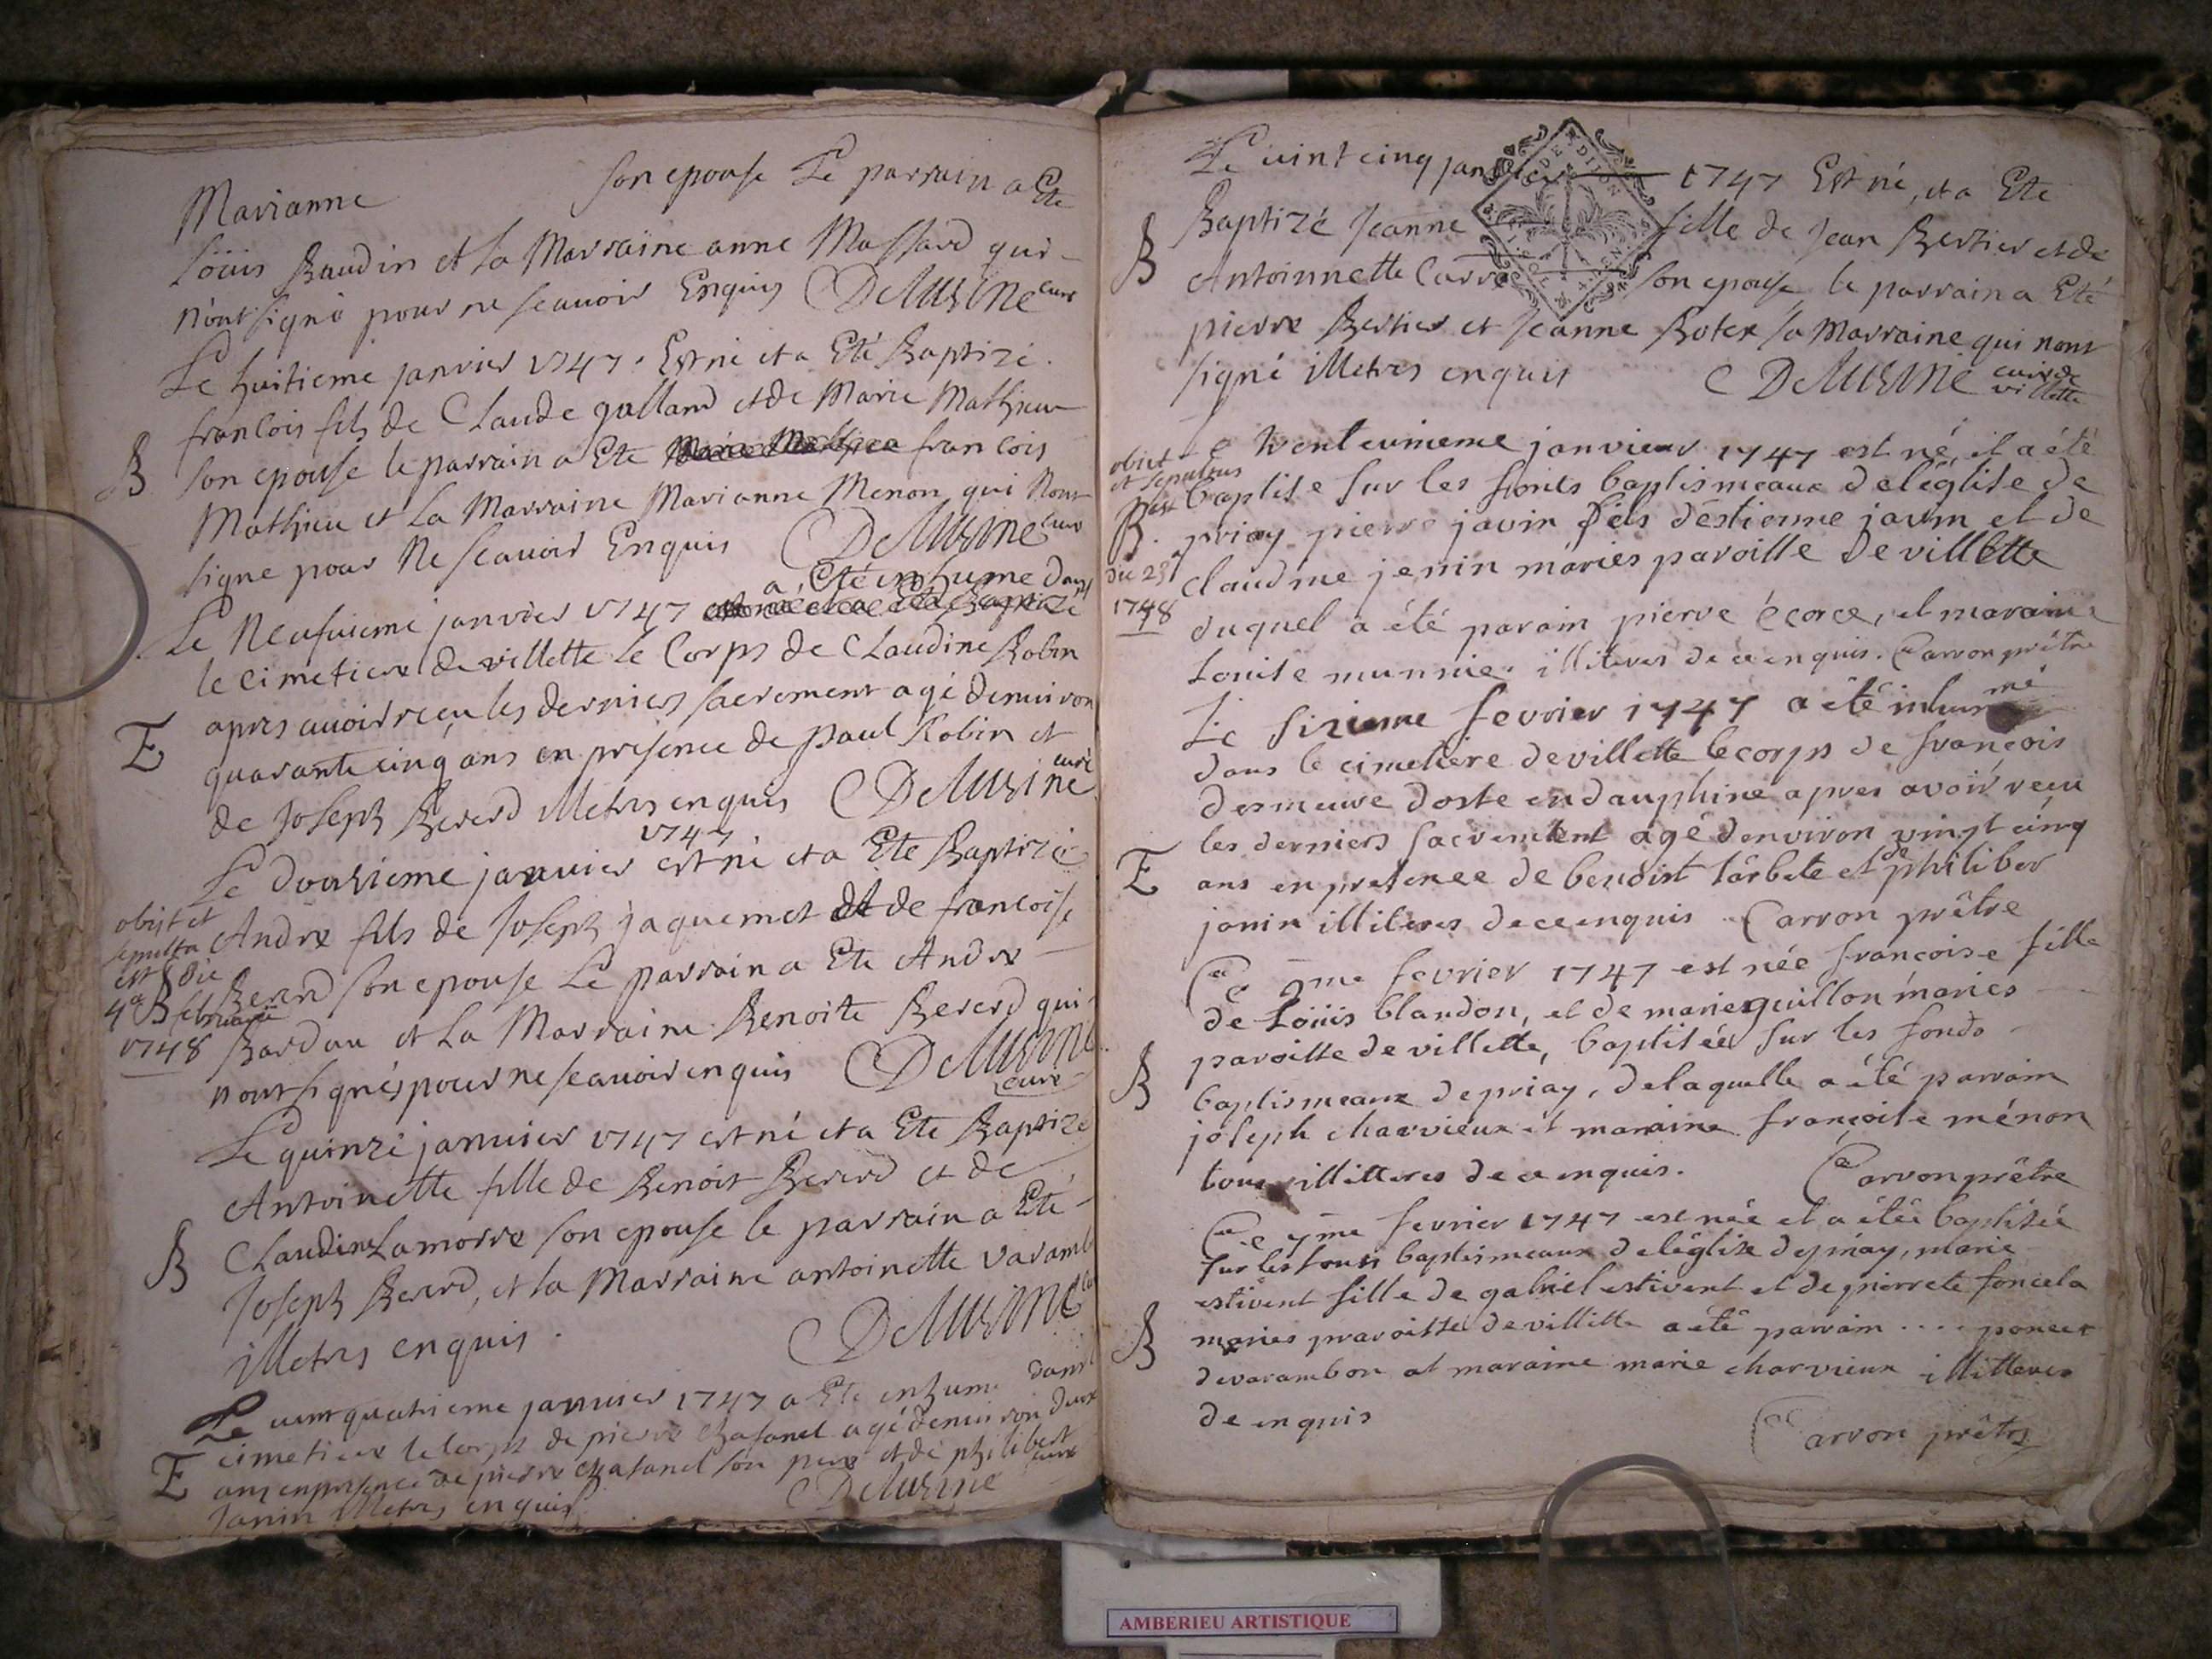 son epouse Le parrain a Ete
Marianne
Loüis Baudin et la Marraine anne Massard qui
n'ont signé pour ne scauoir Enquis Delusine curé
Le huitieme januier 1747. Est né et a Eté Baptizé.
francois fils de Claude galland et de Marie Mathieu
B
son epouse le parrain a Ete francois
Mathieu et la Marraine Marianne Menon qui Nont
signe pour Ne scauoir Enquis Delusine curé
a Eté inhume dans
Le Neufuieme januier 1747
le cimetiere de villette le Corps de Claudine Robin
apres auoir reçeu les derniers sacrement agé denuiron
E
quarante cinq ans en presence de paul Robin et
de Joseph Bererd illetrés enquis Delusine curé
1747
Le douzieme januier est né et a Ete Baptizé
obijt et
sepultus
est die
4a februarii
1748
B
André fils de Joseph jaquemet et de francoise
Bererd son epouse Le parrain a Ete André
Bardau et la Marraine Benoite Bererd qui
nont signés pour ne scauoir enquis Delusine
curé
Le quinze januier 1747 est né et a Ete Baptizé
Antoinette fille de Benoit Bererd et de
B
Claudine Lamorre son epouse le parrain a Eté
Joseph Bererd, et la Marraine antoinette varamb
illetrés enquis. Delusine
Le uint quatrieme januier 1747 a Ete enhume dans
cimetiere le corps de pierre Chasanel agé denuiron deux
E
ans en presence de pierre Chasanel son pere et de philibert
Janin illetrés enquis Delusine curé
Le uint cinq januier 1747 Est né, et a Ete
B
Baptizé Jeanne fille de Jean Bertier et de
Antoinnette Carre son epouse, le parrain a Eté
pierre Bertier et Jeanne Botex la Marraine qui nont
signé illetrés enquis Delusine curé de
villette
obiit
et sepultus
est
B.
die 23
1748
Le trenteunieme janvier 1747 est né, et a été
baptisé sur les fonts baptismeaux de l'église de
priay pierre javin fils d'estienne javin et de
claudine jenin mariés paroisse de villette
duquel a été parain pierre écorce, et maraine
Louise munnier illiteres de ce enquis. Carron prêtre
Le sixieme fevrier 1747 a été inhumé
dans le cimetière de villette le corps de françois
desmeure d'oste en dauphiné apres avoir reçu
les derniers sacrement agé d'environ vingt cinq
E
ans en presence de benoist tarbete et de philiber
janin illiteres de ce enquis Carron prêtre
Ce 9me fevrier 1747 est née françoise fille
de Loüis blandon, et de marie guillon mariés
paroisse de villette, baptisée sur les fonds
B
baptismeaux de priay, de laquelle a été parrain
joseph charvieux et maraine françoise ménon
tous illitteres de ce enquis. Carron prêtre
Ce 9me fevrier 1747 est née et a étée baptisée
sur les fonts baptismeaux de l'église de priay, marie
estivent fille de gabriel estivent et de pierrete foncela
B
mariés paroisse de villette a été parrain .... poncet
de varambon et maraine marie charvieux illitteres
de enquis
Carron prêtre
AMBERIEU ARTISTIQUE